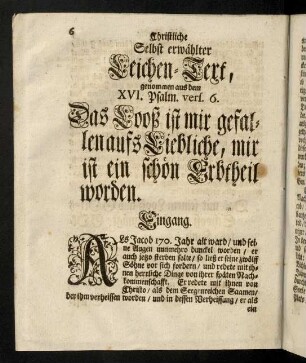 6
Christliche
Selbst erwählter
Leichen-Text,
genommen aus dem
XVI. Psalm. vers. 6.
Das Looß ist mir gefal-
len aufs Liebliche, mir
ist ein schön Erbtheil
worden.
Eingang.
Als Jacob 170. Jahr alt ward/ und sei-
ne Augen nunmehro dunckel worden/ er
auch jetzo sterben solte/ so ließ er seine zwölff
Söhne vor sich fordern/ und redete mit ih-
nen herrliche Dinge von ihrer späten Nach-
kommenschafft. Er redete mit ihnen von
Christo/ als dem Seegensreichen Saamen/
der ihm verheissen worden/ und in dessen Verheissung/ er als
ein